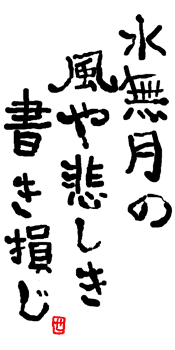 水無月の
風や悲しき
書き損じ